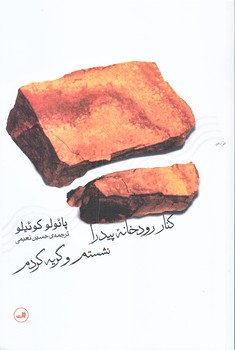 پائولو کوئیلو
ترجمه‌ی حسین نعیمی
کنار رودخانه پیدرا
نشستم و گریه کردم